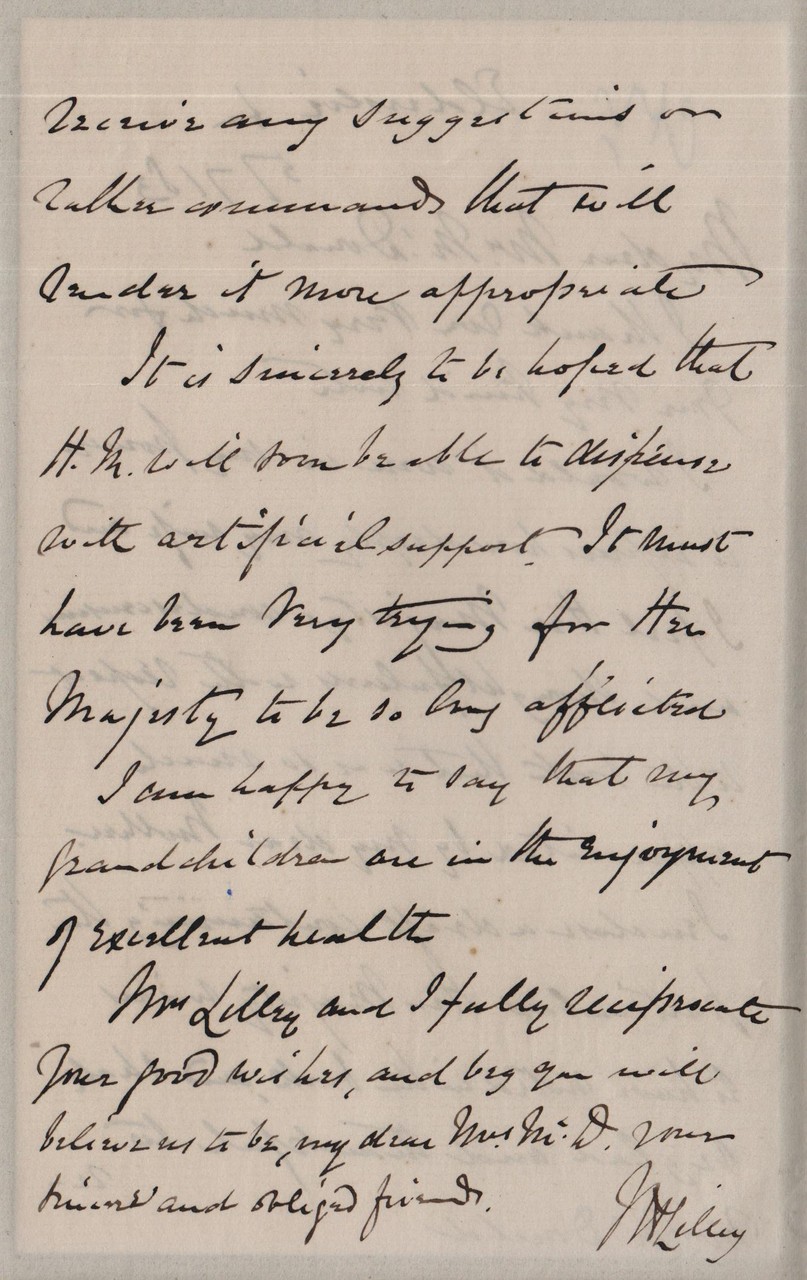 receive any suggestions or
rather commands that will
render it more appropriate
It is sincerely to be hoped that
H.M. will soon be able to dispense
with artificial support. It must
have been very trying for Her
Majesty to be so long afflicted
I am happy to say that my
grandchildren are in the enjoyment
of excellent health
Mrs Lilley and I fully reciprocate
your good wishes, and beg you will
believe us to be, my dear Mrs. Mc. D. your
sincere and obliged friends.
Lilley